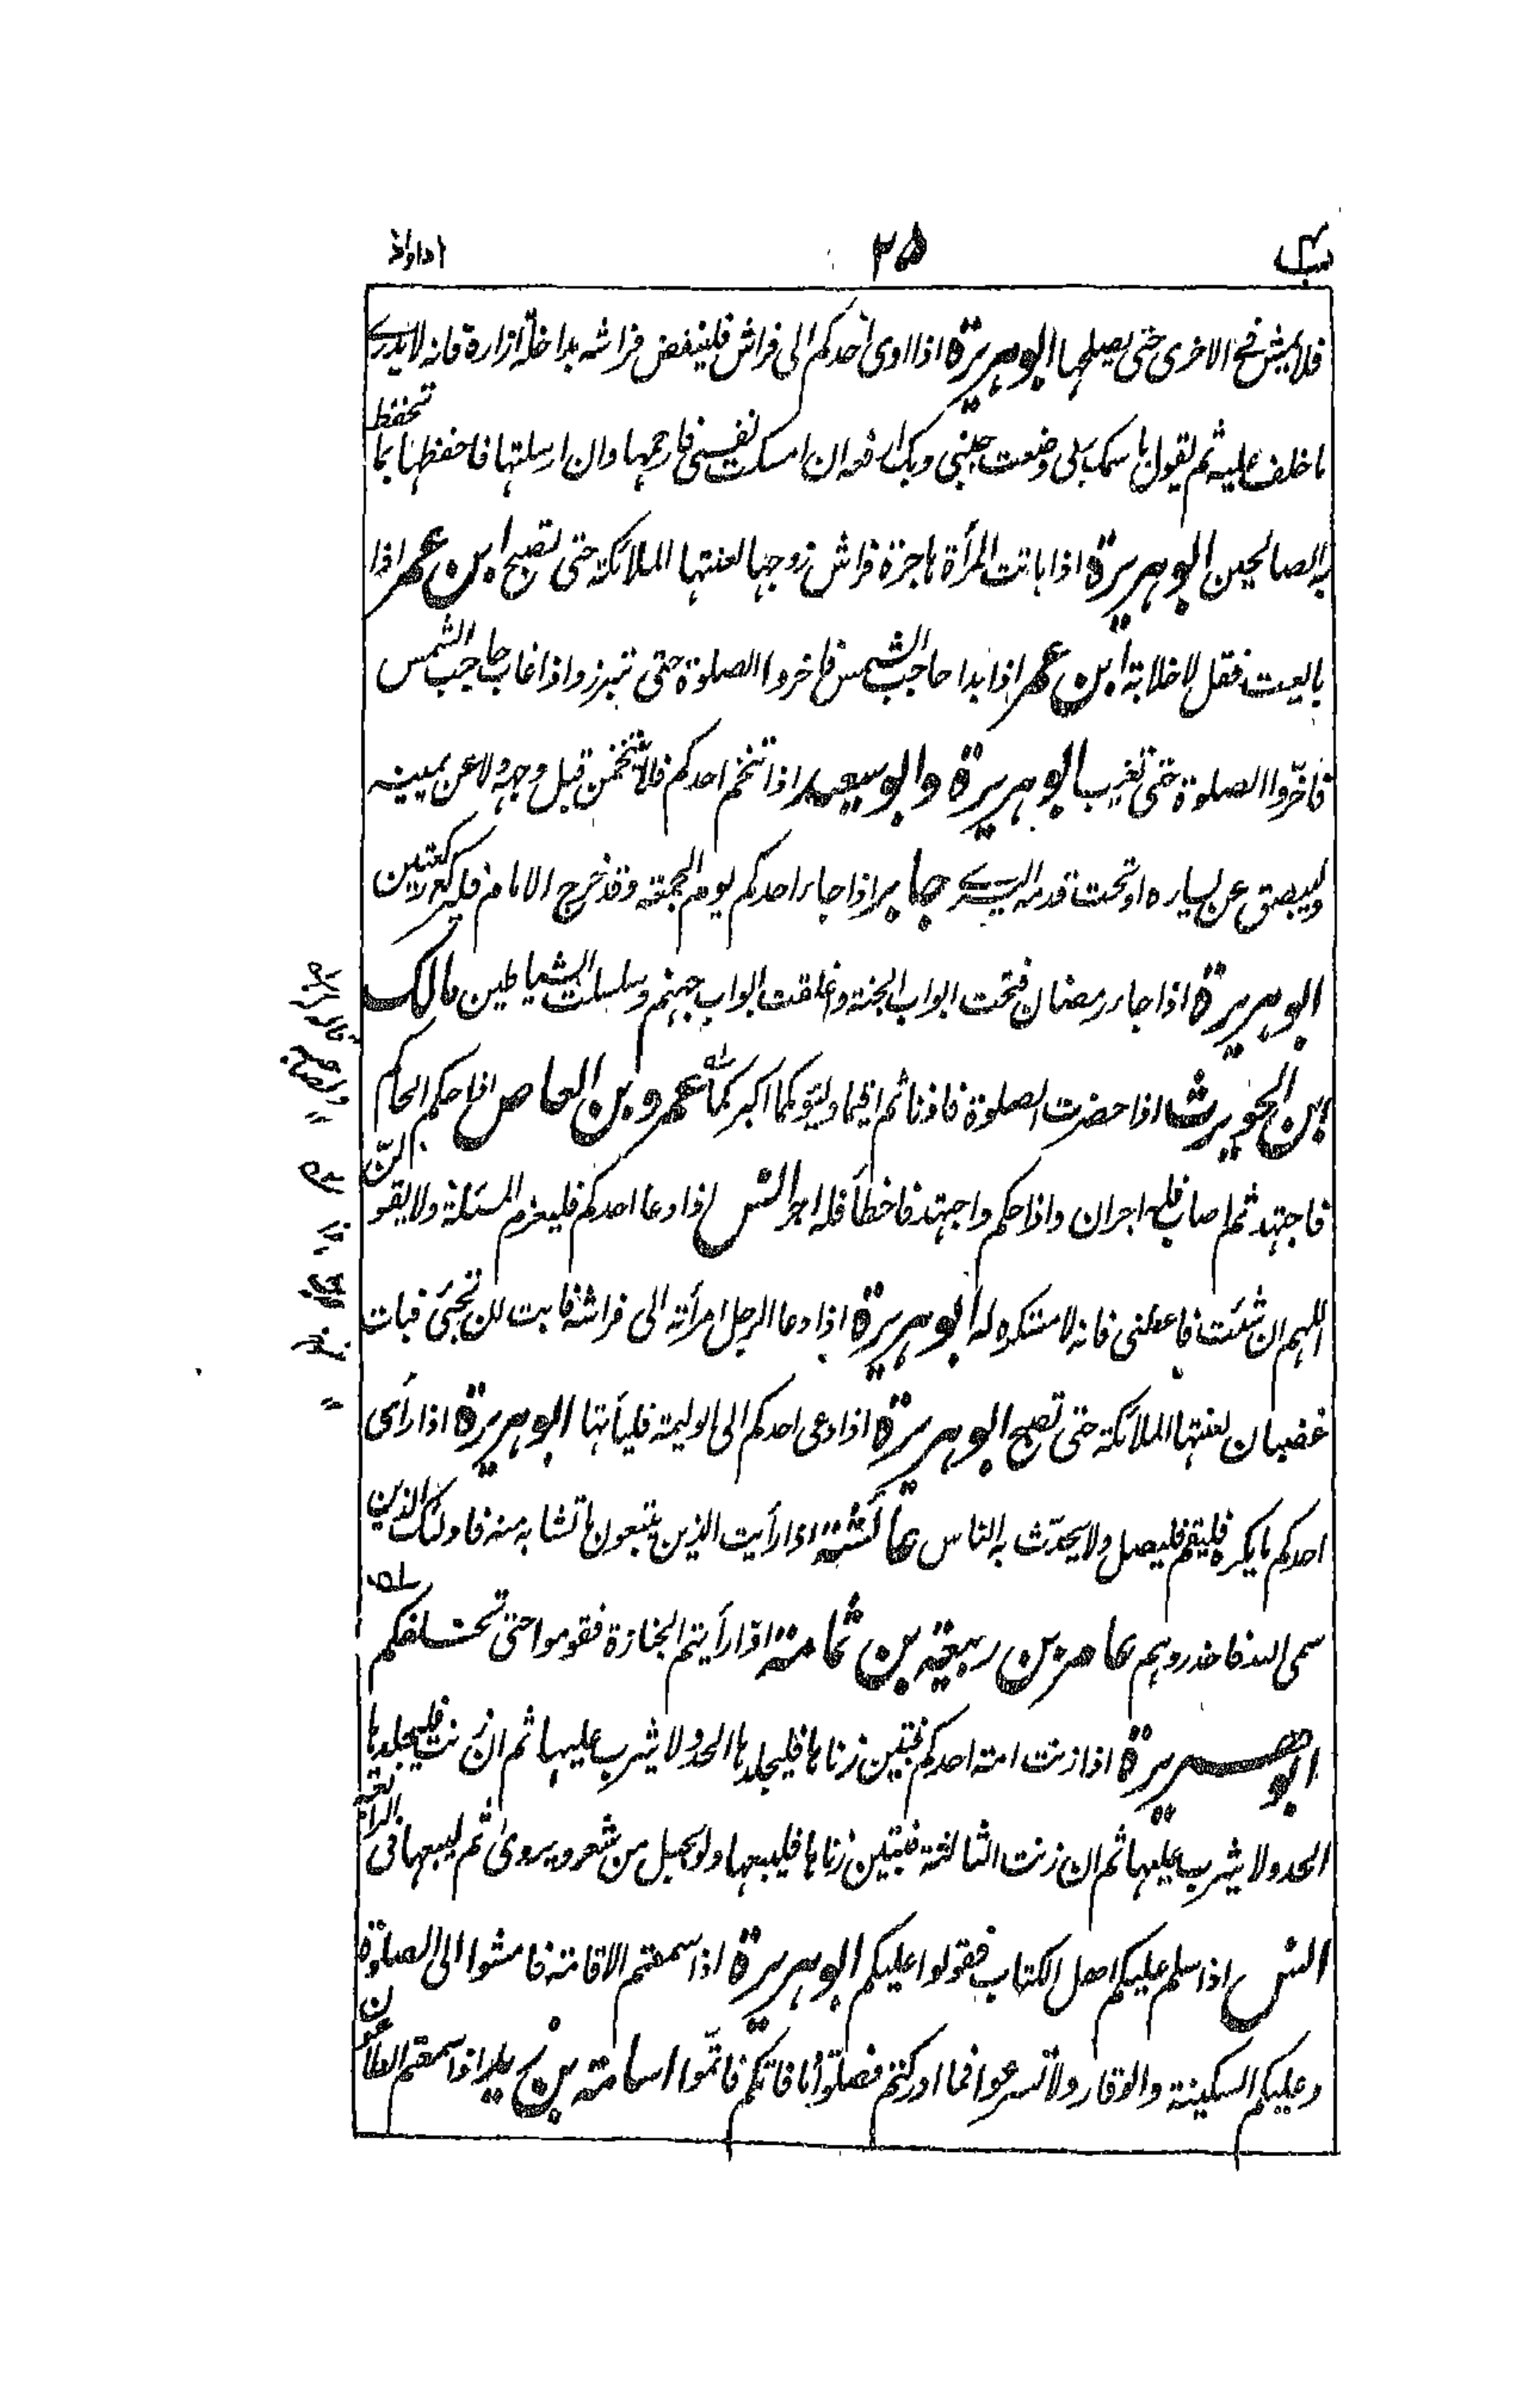 باب ٢٥ اذا واذ
فلا يمش فى الاخرى حتى يصلحها ابو هريرة اذا اوى احدكم الى فراش فلينفض فراشه بداخلة ازارة فانه لا يدرى
ما خلف عليه ثم يقول باسمك ربى وضعت جنبى وبك ارفعه ان امسكت نفسى فارحمها وان ارسلتها فاحفظها بما تحفظ
به الصالحين ابو هريرة اذا باتت المرأة هاجرة فراش زوجها لعنتها الملائكة حتى تصبح ابن عمر اذا
بايعت فقل لا خلابة ابن عمر اذا بدا حاجب الشمس فاخروا الصلوة حتى تبرز واذا غاب حاجب الشمس
فاخّروا الصلوة حتى تغيب ابو هريرة وابو سعيد اذا تنخم احدكم فلا يتنخمن قبل وجهه ولا عن يمينه
وليبصق عن يساره او تحت قدمه اليسرى جابر اذا جاء احدكم يوم الجمعة وقد خرج الامام فليركع ركعتين
ابو هريرة اذا جاء رمضان فتحت ابواب الجنة وغلقت ابواب جهنم وسلسلت الشياطين مالك
ابن الحويرث اذا حضرت الصلوة فاذنا ثم اقيما وليؤمكما اكبركما عمرو بن العاص اذا حكم الحاكم
فاجتهد ثم اصاب فله اجران واذا حكم واجتهد فاخطأ فله اجر انس اذا دعا احدكم فليعزم المسئلة ولا يقولنّ
اللهم ان شئت فاعطنى فانه لا مستكره له ابو هريرة اذا دعا الرجل امرأته الى فراشه فابت ان تجئ فبات
غضبان لعنتها الملائكة حتى تصبح ابو هريرة اذا دعى احدكم الى الوليمة فليأتها ابو هريرة اذا رأى
احدكم ما يكره فليقم فليصل ولا يحدّث به الناس عائشة اذا رأيت الذين يتبعون ما تشابه منه فاولئك الذين
سمى الله فاحذروهم عامر بن ربيعة بن ثمامة اذا رأيتم الجنازة فقوموا حتى تخلفكم
ابو هريرة اذا زنت امة احدكم فتبين زناها فليجلدها الحد ولا يثرب عليها ثم ان زنت فليجلدها
الحد ولا يثرب عليها ثم ان زنت الثالثة فتبين زناها فليبعها ولو بحبل من شعر ويروى ثم ليبعها فى الرابعة
انس اذا سلم عليكم اهل الكتاب فقولوا عليكم ابو هريرة اذا سمعتم الاقامة فامشوا الى الصلوة
وعليكم السكينة والوقار ولا تسرعوا فما ادركتم فصلوا وما فاتكم فاتمّوا اسامة بن زيد اذا سمعتم الطاعون